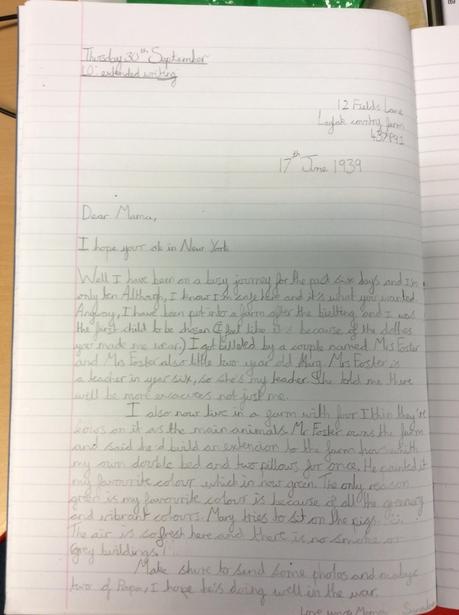 Thursday 30th September
LO: extended writing
12 Fields Lane
country farm
437992
17th June 1939
Dear Mama,
I hope your ok in New York
Well I have been on a busy journey for the past six days and I'm
only ten Although, I know I'm safe here and it's what you wanted.
Anyway, I have been put into a farm after the billeting and I was
the first child to be chosen (I feel like it's because of the clothes
you made me wear.) I got billeted by a couple named Mrs Foster
and Mr Foster also little two year old Mary. Mrs Foster is
a teacher in year six, so she's my teacher. She told me there
will be more evacuees not just me.
I also now live in a farm with four I think they're
cows on it as the main animals. Mr Foster owns the farm
and said he'd build an extencion to the farm house with
my own double bed and two pillows for once. He painted it
my favourite colour which in now green. The only reason
green is my favourite colour is because of all the greenery
and vibrant colours. Mary tries to sit on the pigs.
The air is so fresh here and there is no smoke or
grey buildings!
Make shure to send some photos and maybe
two of Papa, I hope he's doing well in the war.
Love your Mama